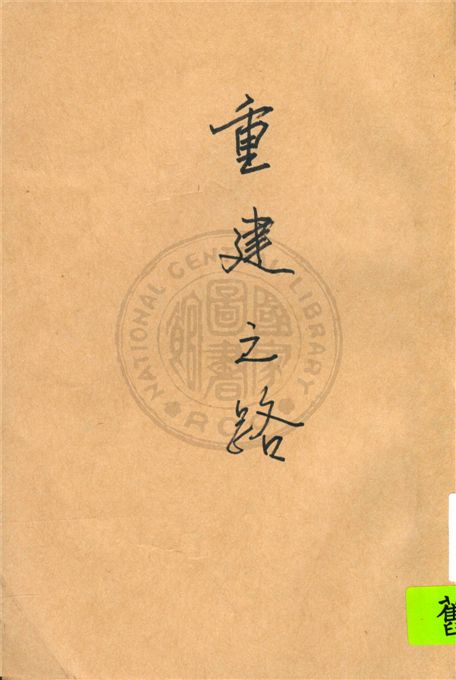 重建之路
NATIONAL CENTRAL LIBRARY
ROC
國家圖書館
舊